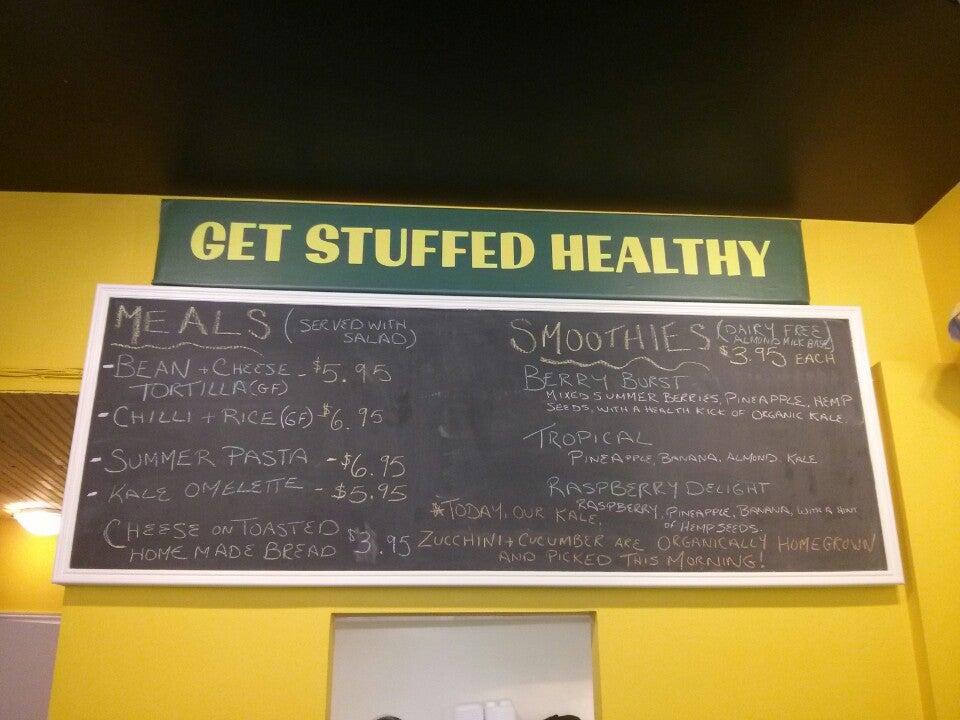 GET STUFFED HEALTHY
MEALS (SERVED WITH
SALAD)
- BEAN + CHEESE - $5.95
TORTILLA (GF)
- CHILLI + RICE (GF) - $6.95
- SUMMER PASTA - $6.95
- KALE OMELETTE - $5.95
CHEESE ON TOASTED
HOME MADE BREAD $3.95
SMOOTHIES (DAIRY FREE
ALMOND MILK BASE)
$3.95 EACH
BERRY BURST
MIXED SUMMER BERRIES, PINEAPPLE, HEMP
SEEDS, WITH A HEALTH KICK OF ORGANIC KALE
TROPICAL
PINEAPPLE, BANANA, ALMOND, KALE
RASPBERRY DELIGHT
RASPBERRY, PINEAPPLE, BANANA, WITH A HINT
OF HEMP SEEDS.
*TODAY, OUR KALE,
ZUCCHINI + CUCUMBER ARE ORGANICALLY HOMEGROWN
AND PICKED THIS MORNING!